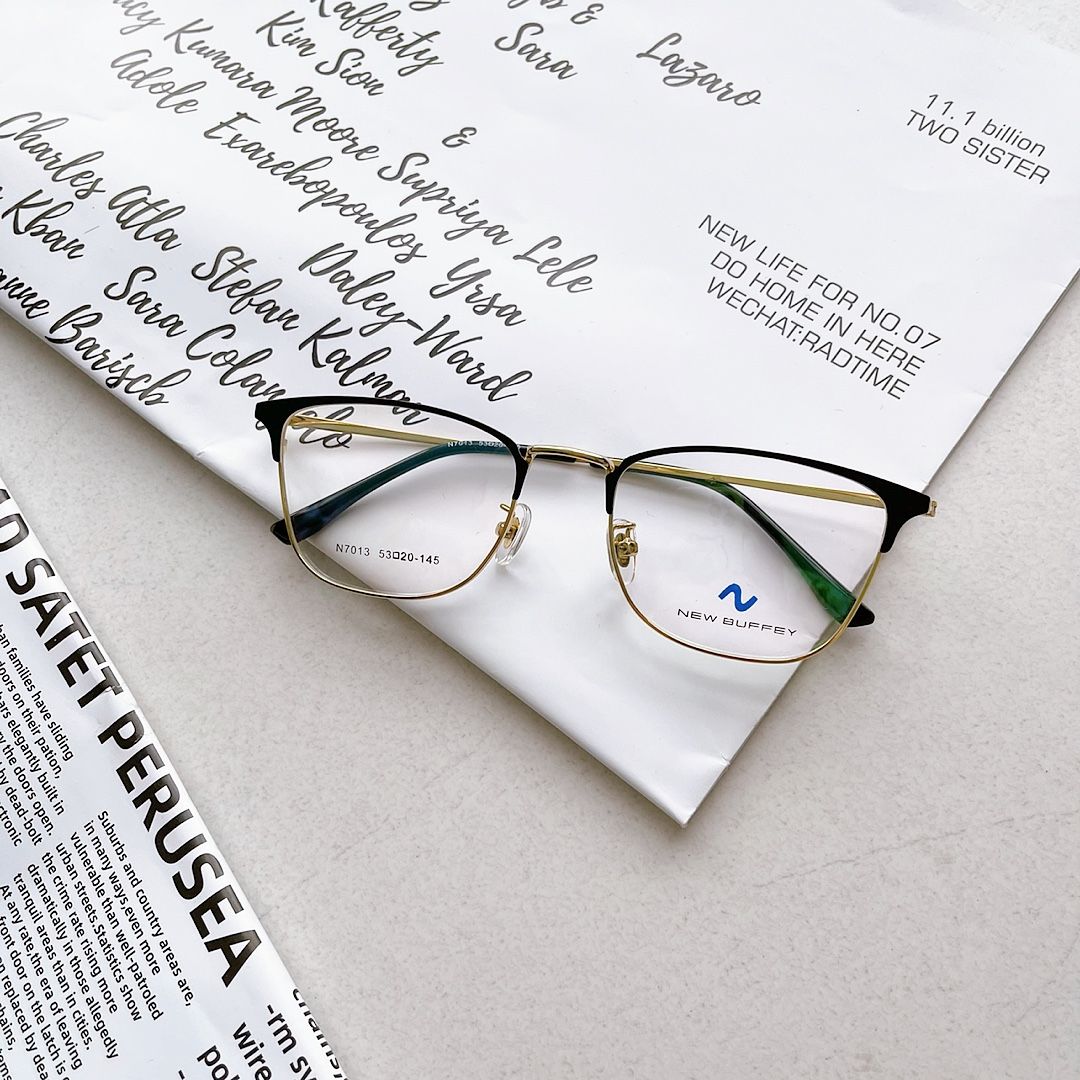 Rafferty
&
Lazaro
Kim Sion
Sara
Kumara Moore
&
Supriya Lele
Adole Exarebopoulos
Yrsa
Daley-Ward
Charles Atla
Stefan Kalmar
Khan
Sara
Barisch
11.1 billion
TWO SISTER
NEW LIFE FOR NO.07
DO HOME IN HERE
WECHAT:RADTIME
N7013 53□20-145
NEW BUFFEY
SATET PERUSEA
families have sliding
doors on their pation,
elegantly built in
the doors open.
by dead-bolt
Suburbs and country areas are,
in many ways,even more
vulnerable than well-patroled
urban streets.Statistics show
the crime rate rising more
dramatically in those allegedly
tranquil areas than in cities.
At any rate,the era of leaving
front door on the latch is
replaced by
-rm
wire